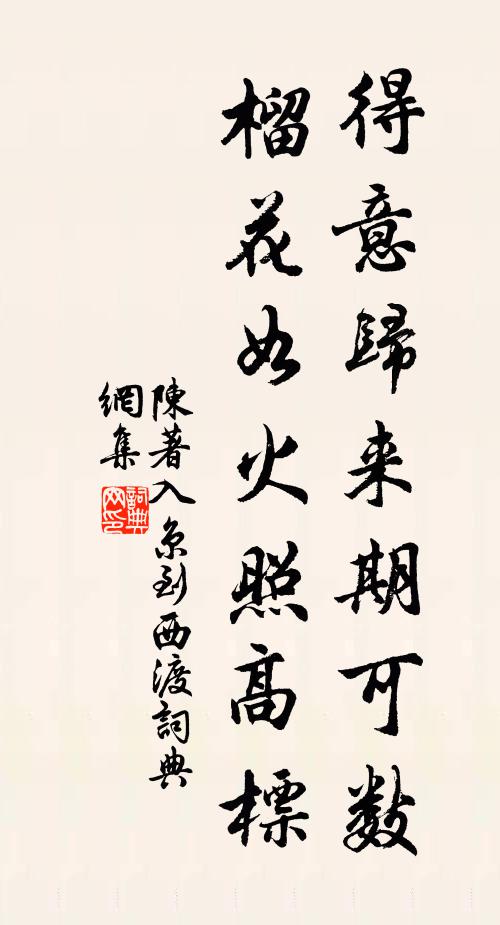 得意歸来期可数
榴花如火照高標
陳著入京到西渡詞典
網集
詞典
网印